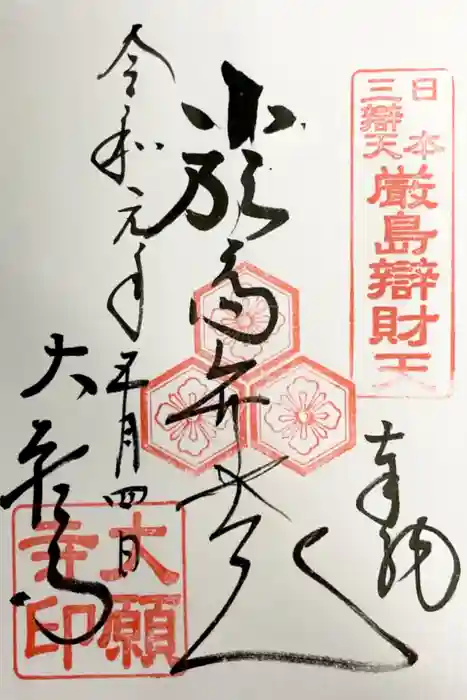 日本
三辯天
厳島辯財天
奉納
厳島弁才天
令和元年五月四日
大願寺
大願
寺印